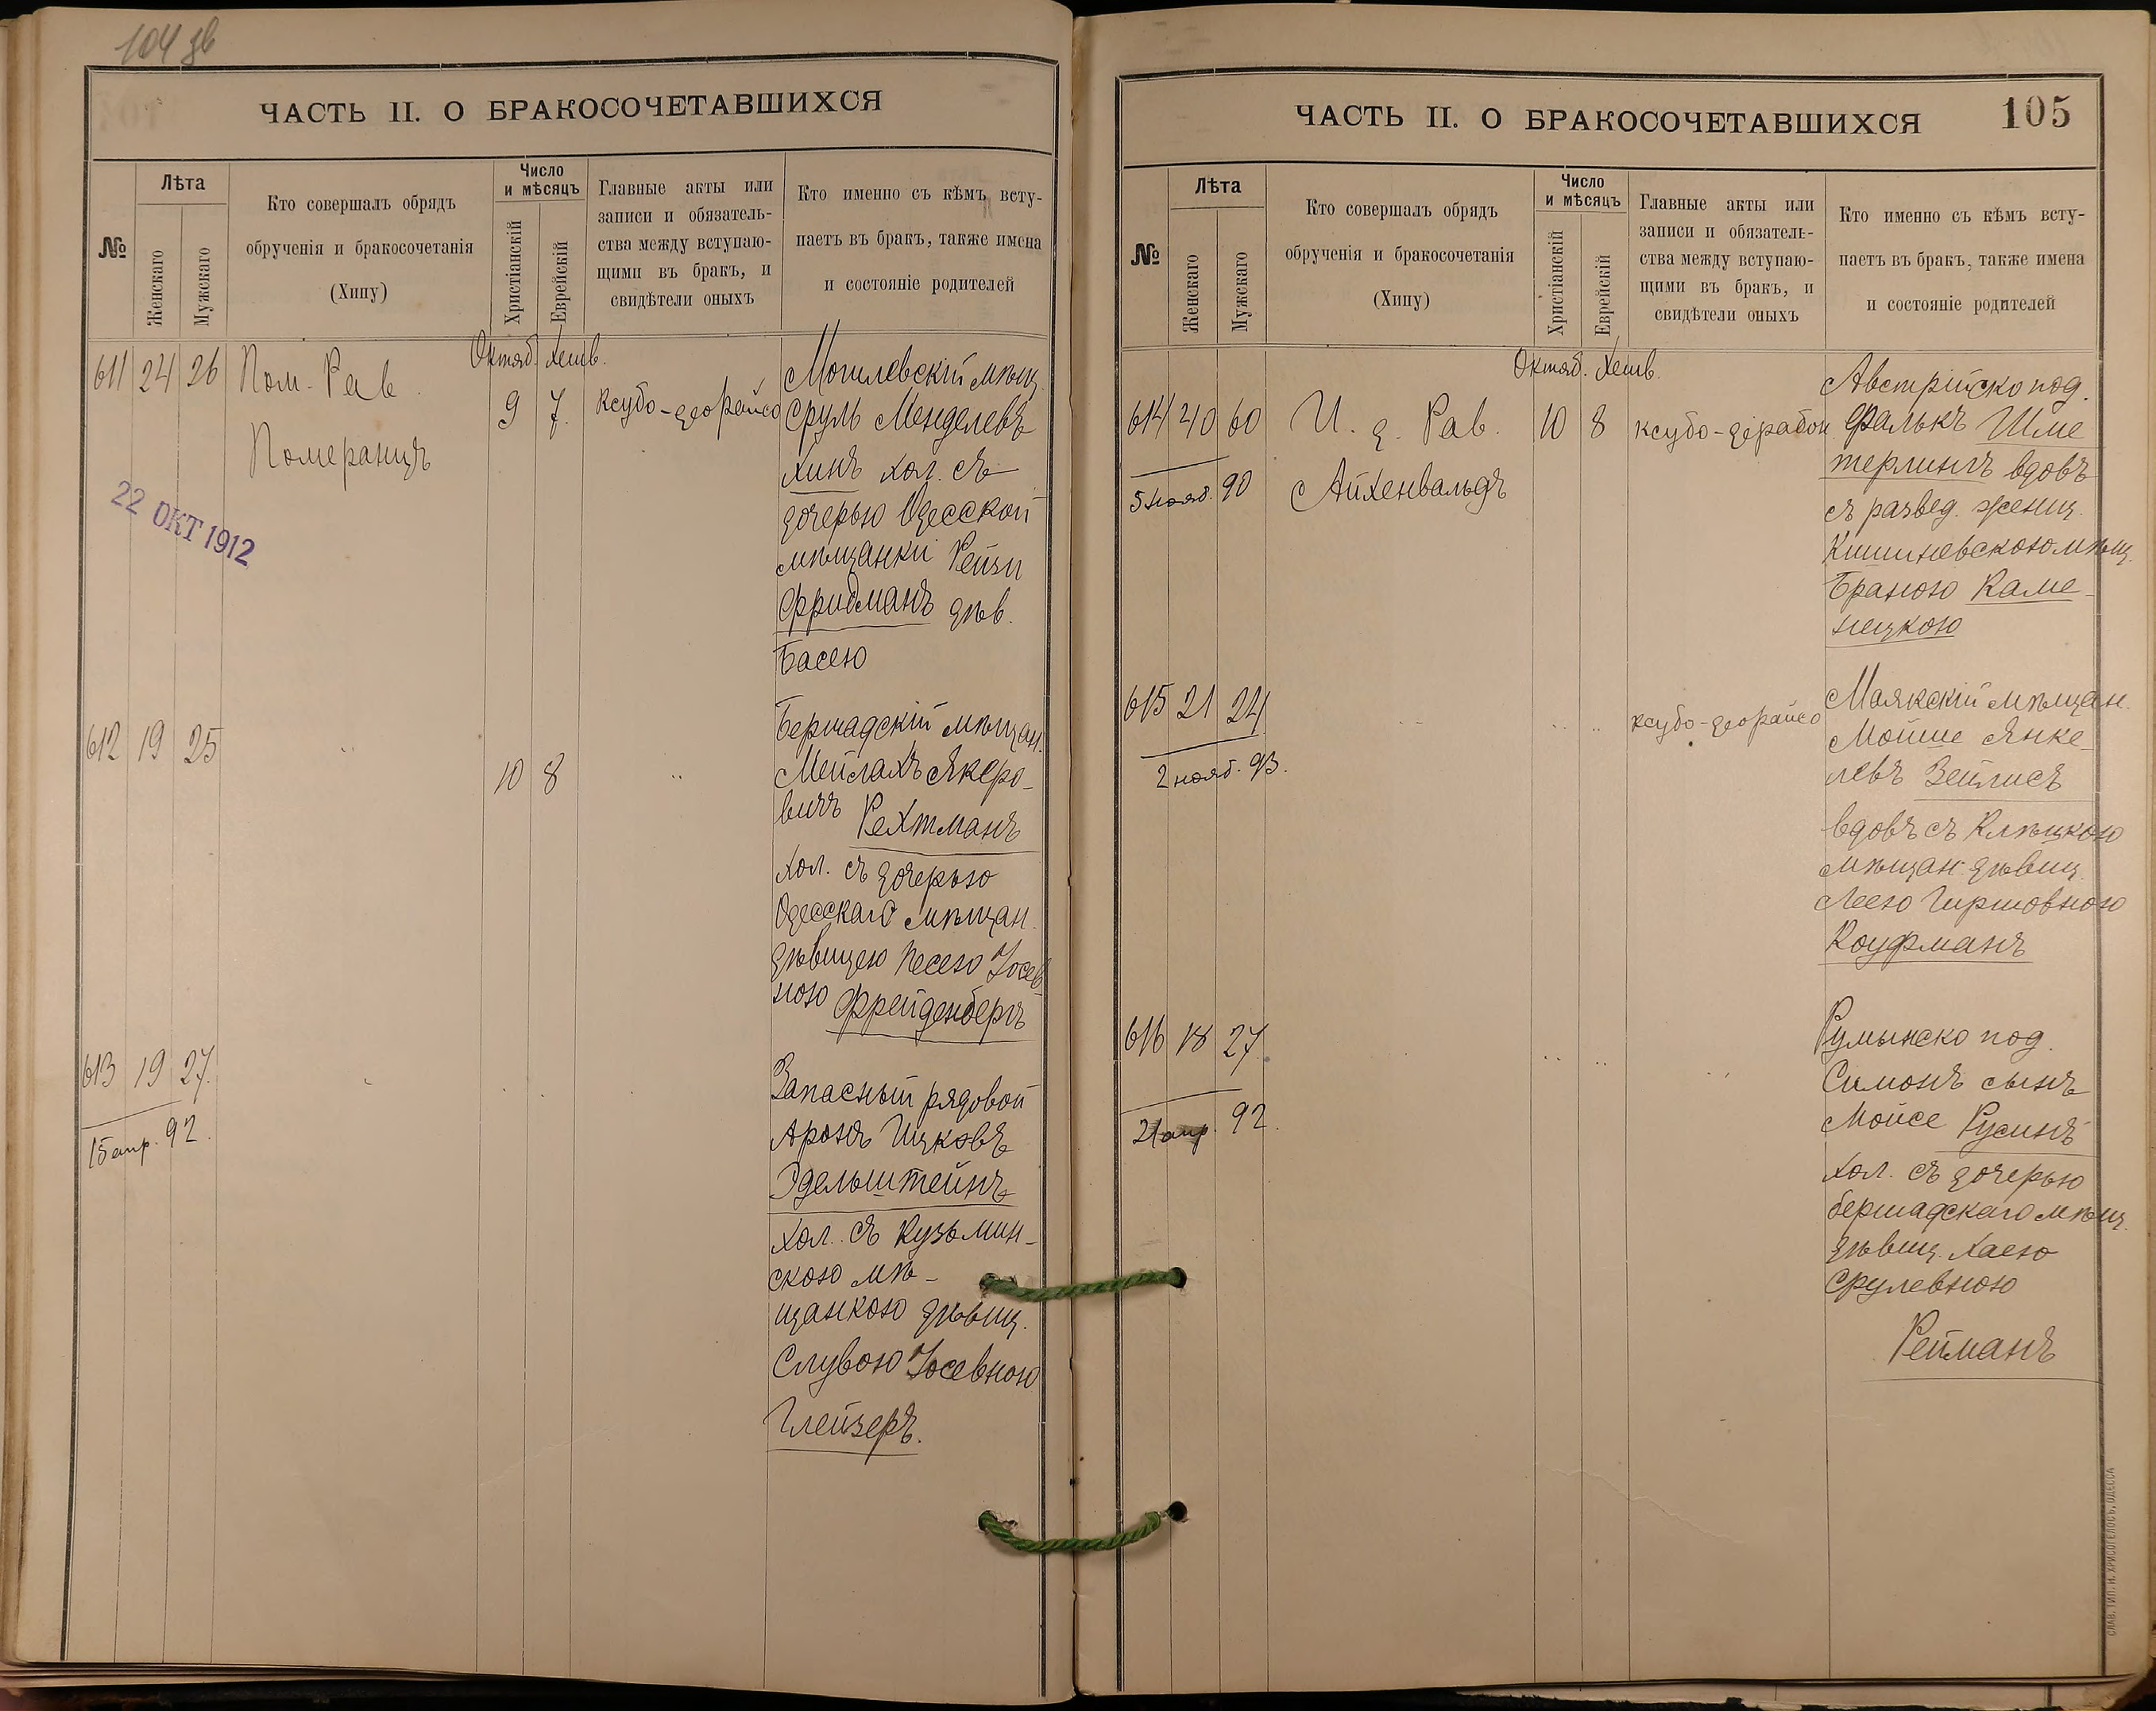 104 зв
ЧАСТЬ II. О БРАКОСОЧЕТАВШИХСЯ
№
Лѣта
Женскаго
Мужскаго
Кто совершалъ обрядъ
обрученія и бракосочетанія
(Хипу)
Число
и мѣсяцъ
Христіанскій
Еврейскій
Главные акты или
записи и обязатель-
ства между вступаю-
щими въ бракъ, и
свидѣтели оныхъ
Кто именно съ кѣмъ всту-
паетъ въ бракъ, также имена
и состояніе родителей
Октяб. Хешв.
611 24 26 Пом. Рав
Померанцъ
9 7. ксубо-деорайсо
Могилевскій мѣщ.
Сруль Менделевъ
Хинъ хол. съ
дочерью Одесской
мѣщанки Рейзи
Фридманъ дѣв.
Басею
22 ОКТ 1912
612 19 25 " 10 8 "
Бершадскій мѣщан.
Мейлахъ Якеро-
вичъ Рехтманъ
хол. съ дочерью
Одесскаго мѣщан.
дѣвицею Песею Іосев
ною Фрейденбергъ
613 19 27.
15 апр. 92.
Запасный рядовой
Аронъ Ицковъ
Эдельштейнъ
хол. съ Кузьмин-
скою мѣ-
щанкою дѣвиц.
Слувою Іосевною
Глейзеръ.
ЧАСТЬ II. О БРАКОСОЧЕТАВШИХСЯ 105
№
Лѣта
Женскаго
Мужскаго
Кто совершалъ обрядъ
обрученія и бракосочетанія
(Хипу)
Число
и мѣсяцъ
Христіанскій
Еврейскій
Главные акты или
записи и обязатель-
ства между вступаю-
щими въ бракъ, и
свидѣтели оныхъ
Кто именно съ кѣмъ всту-
паетъ въ бракъ, также имена
и состояніе родителей
Октяб. Хешв.
614 40 60 И. д. Рав.
5 нояб. 90 Айхенвальдъ
10 8 ксубо-дерабон
Австрійско под.
Фалькъ Шме
терлингъ вдовъ
съ развед. женщ.
Кишиневскою мѣщ.
Браною Каме-
нецкою
615 21 24 " " " ксубо-деорайсо
2 нояб. 93.
Маякскій мѣщан.
Мойше Янке-
левъ Зейлисъ
вдовъ съ Клѣцкою
мѣщан. дѣвиц.
Леею Гиршовною
Коуфманъ
616 18 27. " " "
21 апр. 92.
Румынско под.
Симонъ сынъ
Мойсе Русинъ
хол. съ дочерью
бершадскаго мѣщ.
дѣвиц. Хаею
Срулевною
Рейманъ
СЛАВ. ТИП. Н. ХРИСОГЕЛОСЪ, ОДЕССА